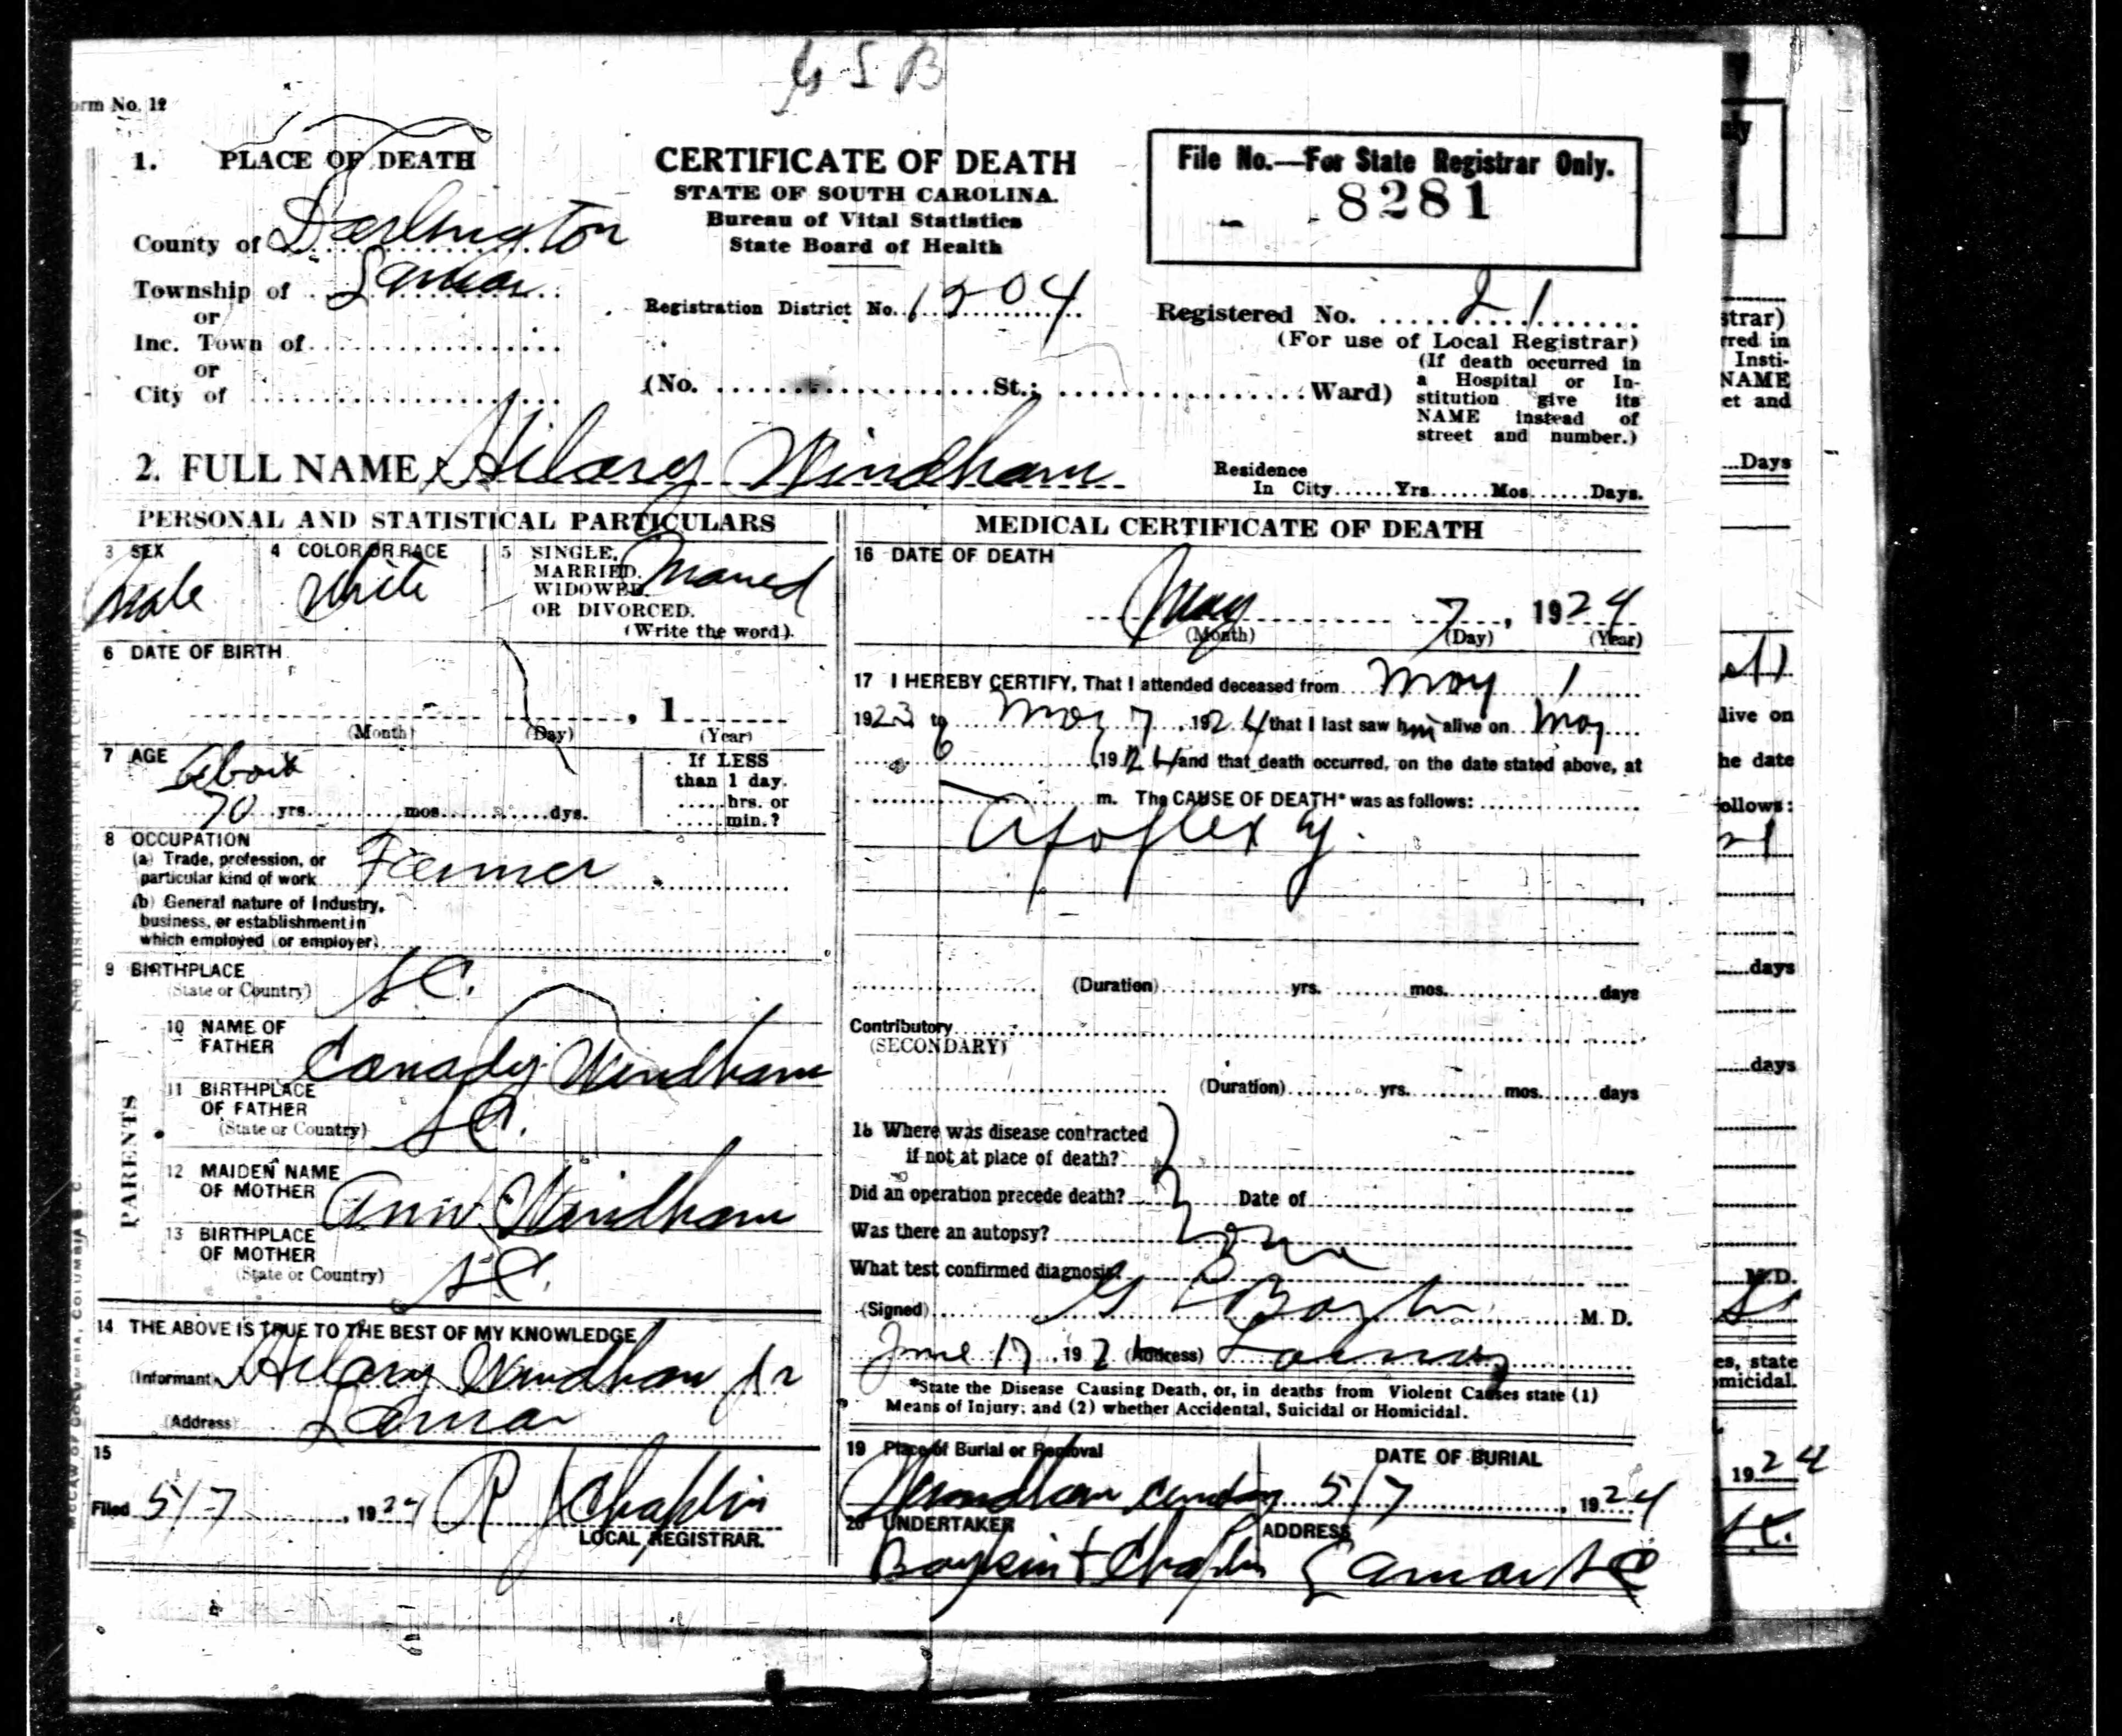 G S B
orm No. 12
1. PLACE OF DEATH
County of Darlington
Township of Lamar
or
Inc. Town of
or
City of
CERTIFICATE OF DEATH
STATE OF SOUTH CAROLINA.
Bureau of Vital Statistics
State Board of Health
Registration District No. 1504
(No. St.; Ward)
File No.—For State Registrar Only.
8281
Registered No. 21
(For use of Local Registrar)
(If death occurred in
a Hospital or In-
stitution give its
NAME instead of
street and number.)
2. FULL NAME Hilary Windham
Residence
In City......Yrs......Mos......Days.
PERSONAL AND STATISTICAL PARTICULARS
3 SEX
Male
4 COLOR OR RACE
White
5 SINGLE,
MARRIED,
WIDOWED,
OR DIVORCED.
(Write the word).
Maried
6 DATE OF BIRTH
, 1
(Month) (Day) (Year)
7 AGE
About
70 yrs. mos. dys.
If LESS
than 1 day.
hrs. or
min.?
8 OCCUPATION
(a) Trade, profession, or
particular kind of work Farmer
(b) General nature of Industry,
business, or establishment in
which employed (or employer)
9 BIRTHPLACE
(State or Country) S.C.
10 NAME OF
FATHER Canady Windham
11 BIRTHPLACE
OF FATHER
(State or Country) S.C.
12 MAIDEN NAME
OF MOTHER Ann Windham
13 BIRTHPLACE
OF MOTHER
(State or Country) S.C.
PARENTS
14 THE ABOVE IS TRUE TO THE BEST OF MY KNOWLEDGE
(Informant) Hilary Windham Jr
(Address) Lamar
15
Filed 5/7, 1924 R J Chaplin
LOCAL REGISTRAR.
MEDICAL CERTIFICATE OF DEATH
16 DATE OF DEATH
May 7, 1924
(Month) (Day) (Year)
17 I HEREBY CERTIFY, That I attended deceased from May 1
1923 to May 7, 1924 that I last saw him alive on May
6, 1924 and that death occurred, on the date stated above, at
m. The CAUSE OF DEATH* was as follows:
Apoplexy.
(Duration) yrs. mos. days
Contributory
(SECONDARY)
(Duration) yrs. mos. days
18 Where was disease contracted
if not at place of death?
Did an operation precede death? Date of
Was there an autopsy?
What test confirmed diagnosis?
(Signed) M. D.
June 17, 192 (Address) Lamar
*State the Disease Causing Death, or, in deaths from Violent Causes state (1)
Means of Injury; and (2) whether Accidental, Suicidal or Homicidal.
19 Place of Burial or Removal
DATE OF BURIAL
Windham 5/7, 1924
20 UNDERTAKER
ADDRESS
Boykin + Chaplin Lamar S C
strar)
rred in
Insti-
NAME
et and
Days
live on
he date
ollows:
days
days
M.D.
es, state
omicidal.
1924